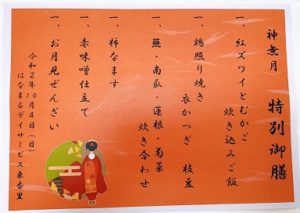 神無月 特別御膳
一、紅ズワイとむかご
炊き込みご飯
一、鶏照り焼き
衣かつぎ 枝豆
一、蕪・南瓜・蓮根・菊菜
炊き合わせ
一、柿なます
一、赤味噌仕立て
一、お月見ぜんざい
令和2年10月4日(日)
はなまるデイサービス東香里